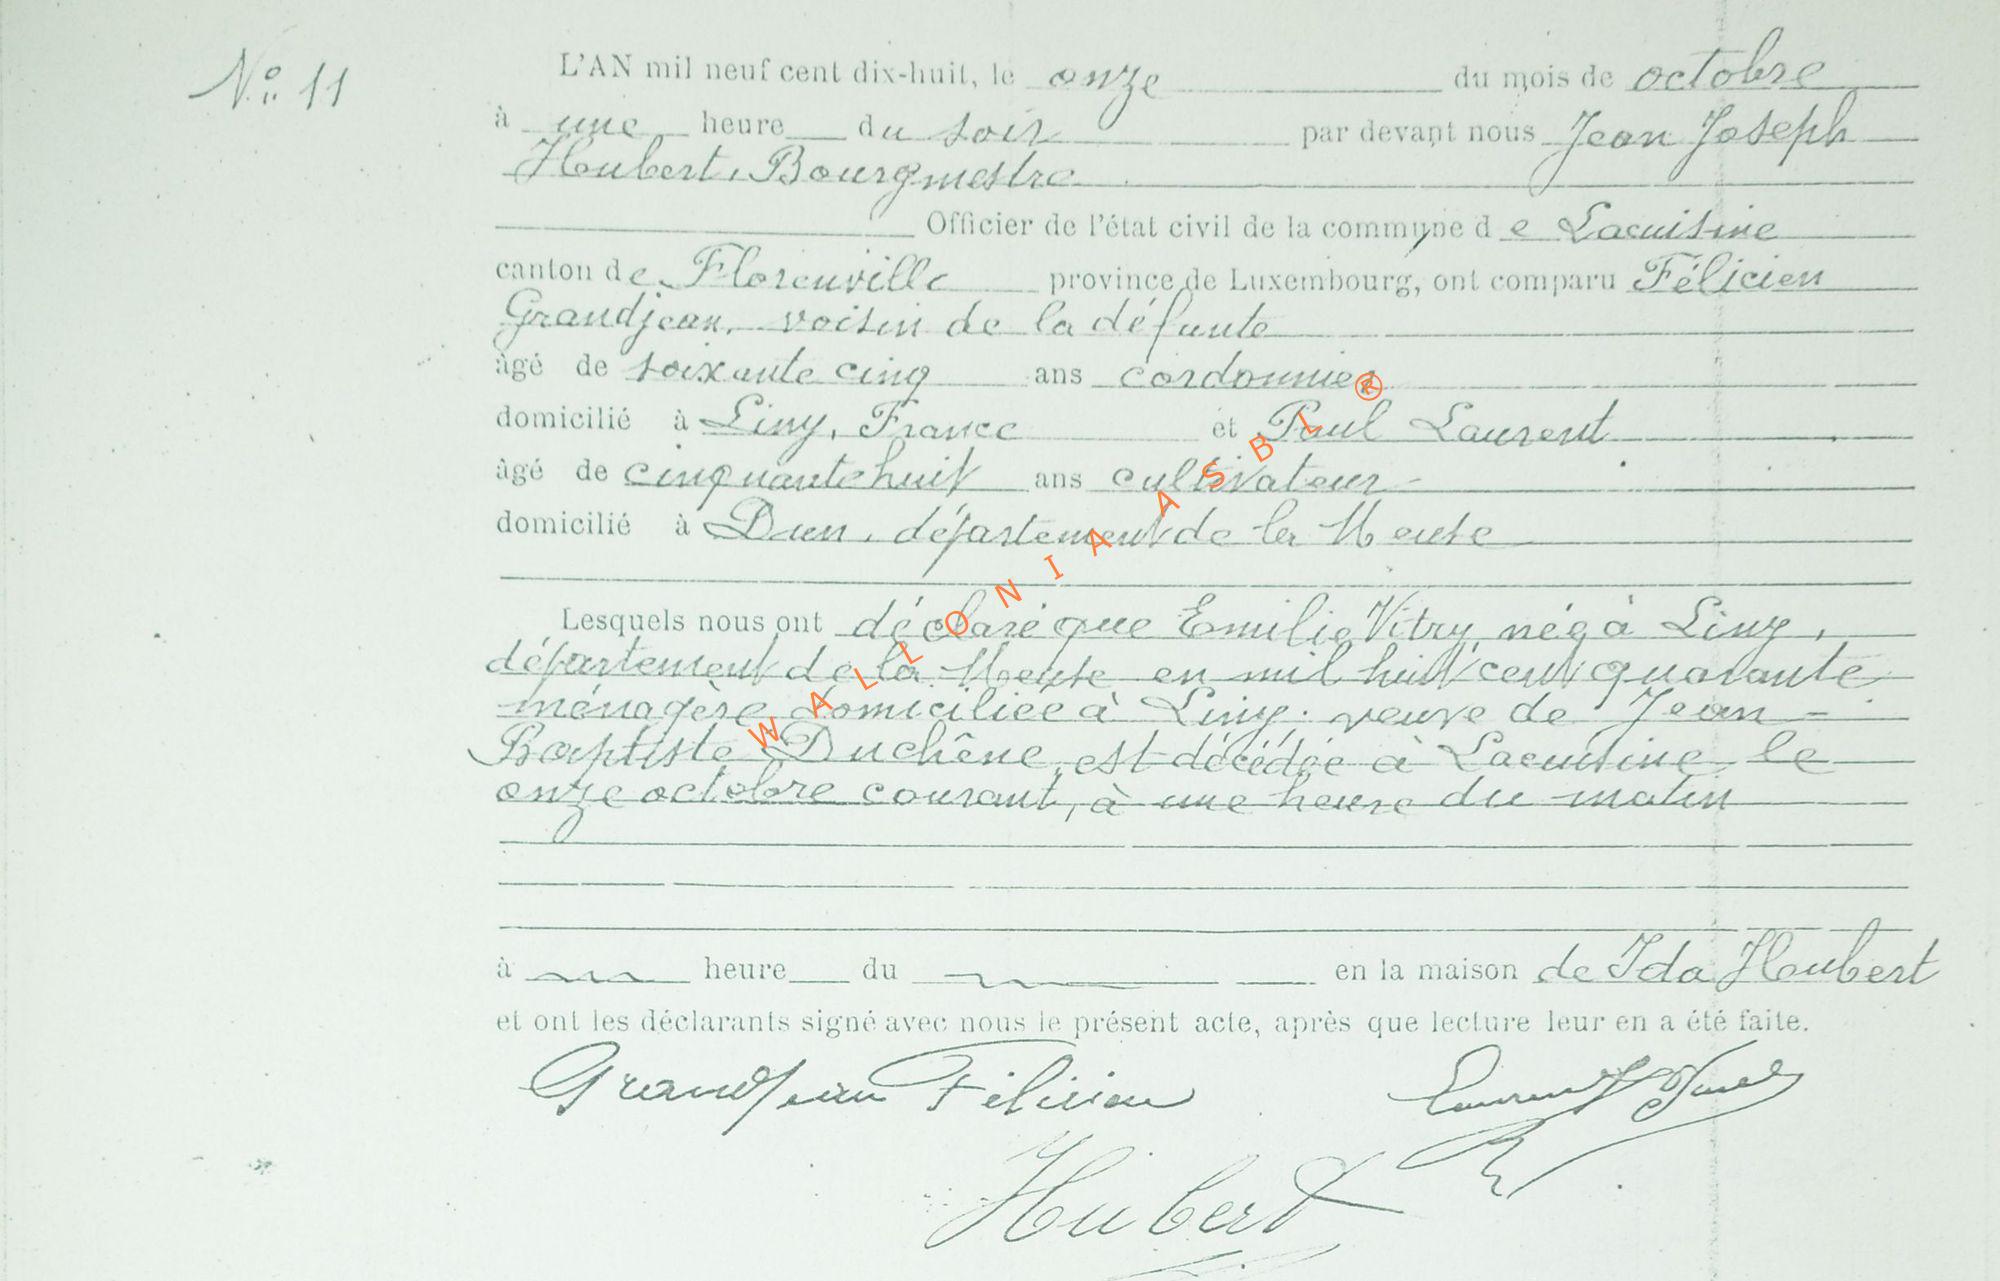 N° 11
L'AN mil neuf cent dix-huit, le onze du mois de octobre
à une heure du soir par devant nous Jean Joseph
Houbert, Bourgmestre
Officier de l'état civil de la commune de Lacuisine
canton de Florenville province de Luxembourg, ont comparu Félicien
Grandjean, voisin de la défunte
âgé de soixante cinq ans cordonnier
domicilié à Liny, France et Paul Laurent
âgé de cinquante huit ans cultivateur
domicilié à Dun, département de la Meuse
Lesquels nous ont déclaré que Emilie Vitry, née à Liny,
département de la Meuse en mil huit cent quarante
ménagère domiciliée à Liny, veuve de Jean-
Baptiste Duchêne, est décédée à Lacuisine le
onze octobre courant, à une heure du matin
à heure du en la maison de Ida Houbert
et ont les déclarants signé avec nous le présent acte, après que lecture leur en a été faite.
Grandjean Félicien Laurent
Hubert
WALLONIA ASBL ®